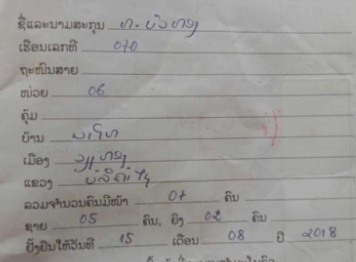 ຊື່ແລະນາມສະກຸນ ທ. ບົວທອງ
ເຮືອນເລກທີ 070
ຖະໜົນສາຍ
ໜ່ວຍ 06
ຄຸ້ມ
ບ້ານ
ເມືອງ
ແຂວງ ບໍລິຄຳໄຊ
ລວມຈຳນວນຄົນມີໜ້າ 07 ຄົນ
ຊາຍ 05 ຄົນ, ຍິງ 02 ຄົນ
ຢັ້ງຢືນໃຫ້ວັນທີ 15 ເດືອນ 08 ປີ 2018